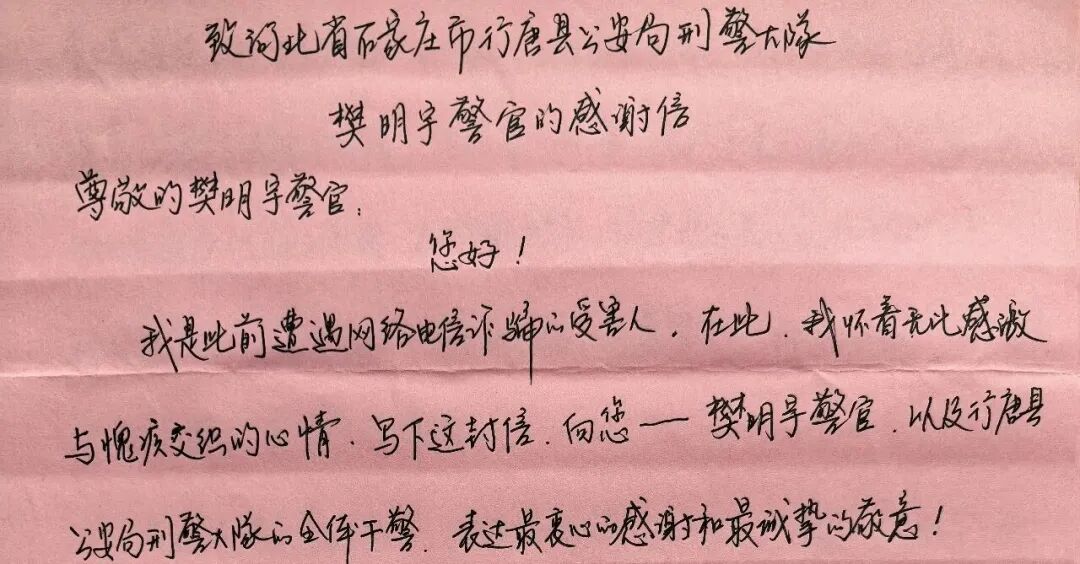 致河北省石家庄市行唐县公安局刑警大队
樊明宇警官的感谢信
尊敬的樊明宇警官：
您好！
我是此前遭遇网络电信诈骗的受害人，在此，我怀着无比感激
与愧疚交织的心情，写下这封信，向您——樊明宇警官，以及行唐县
公安局刑警大队的全体干警，表达最衷心的感谢和最诚挚的敬意！